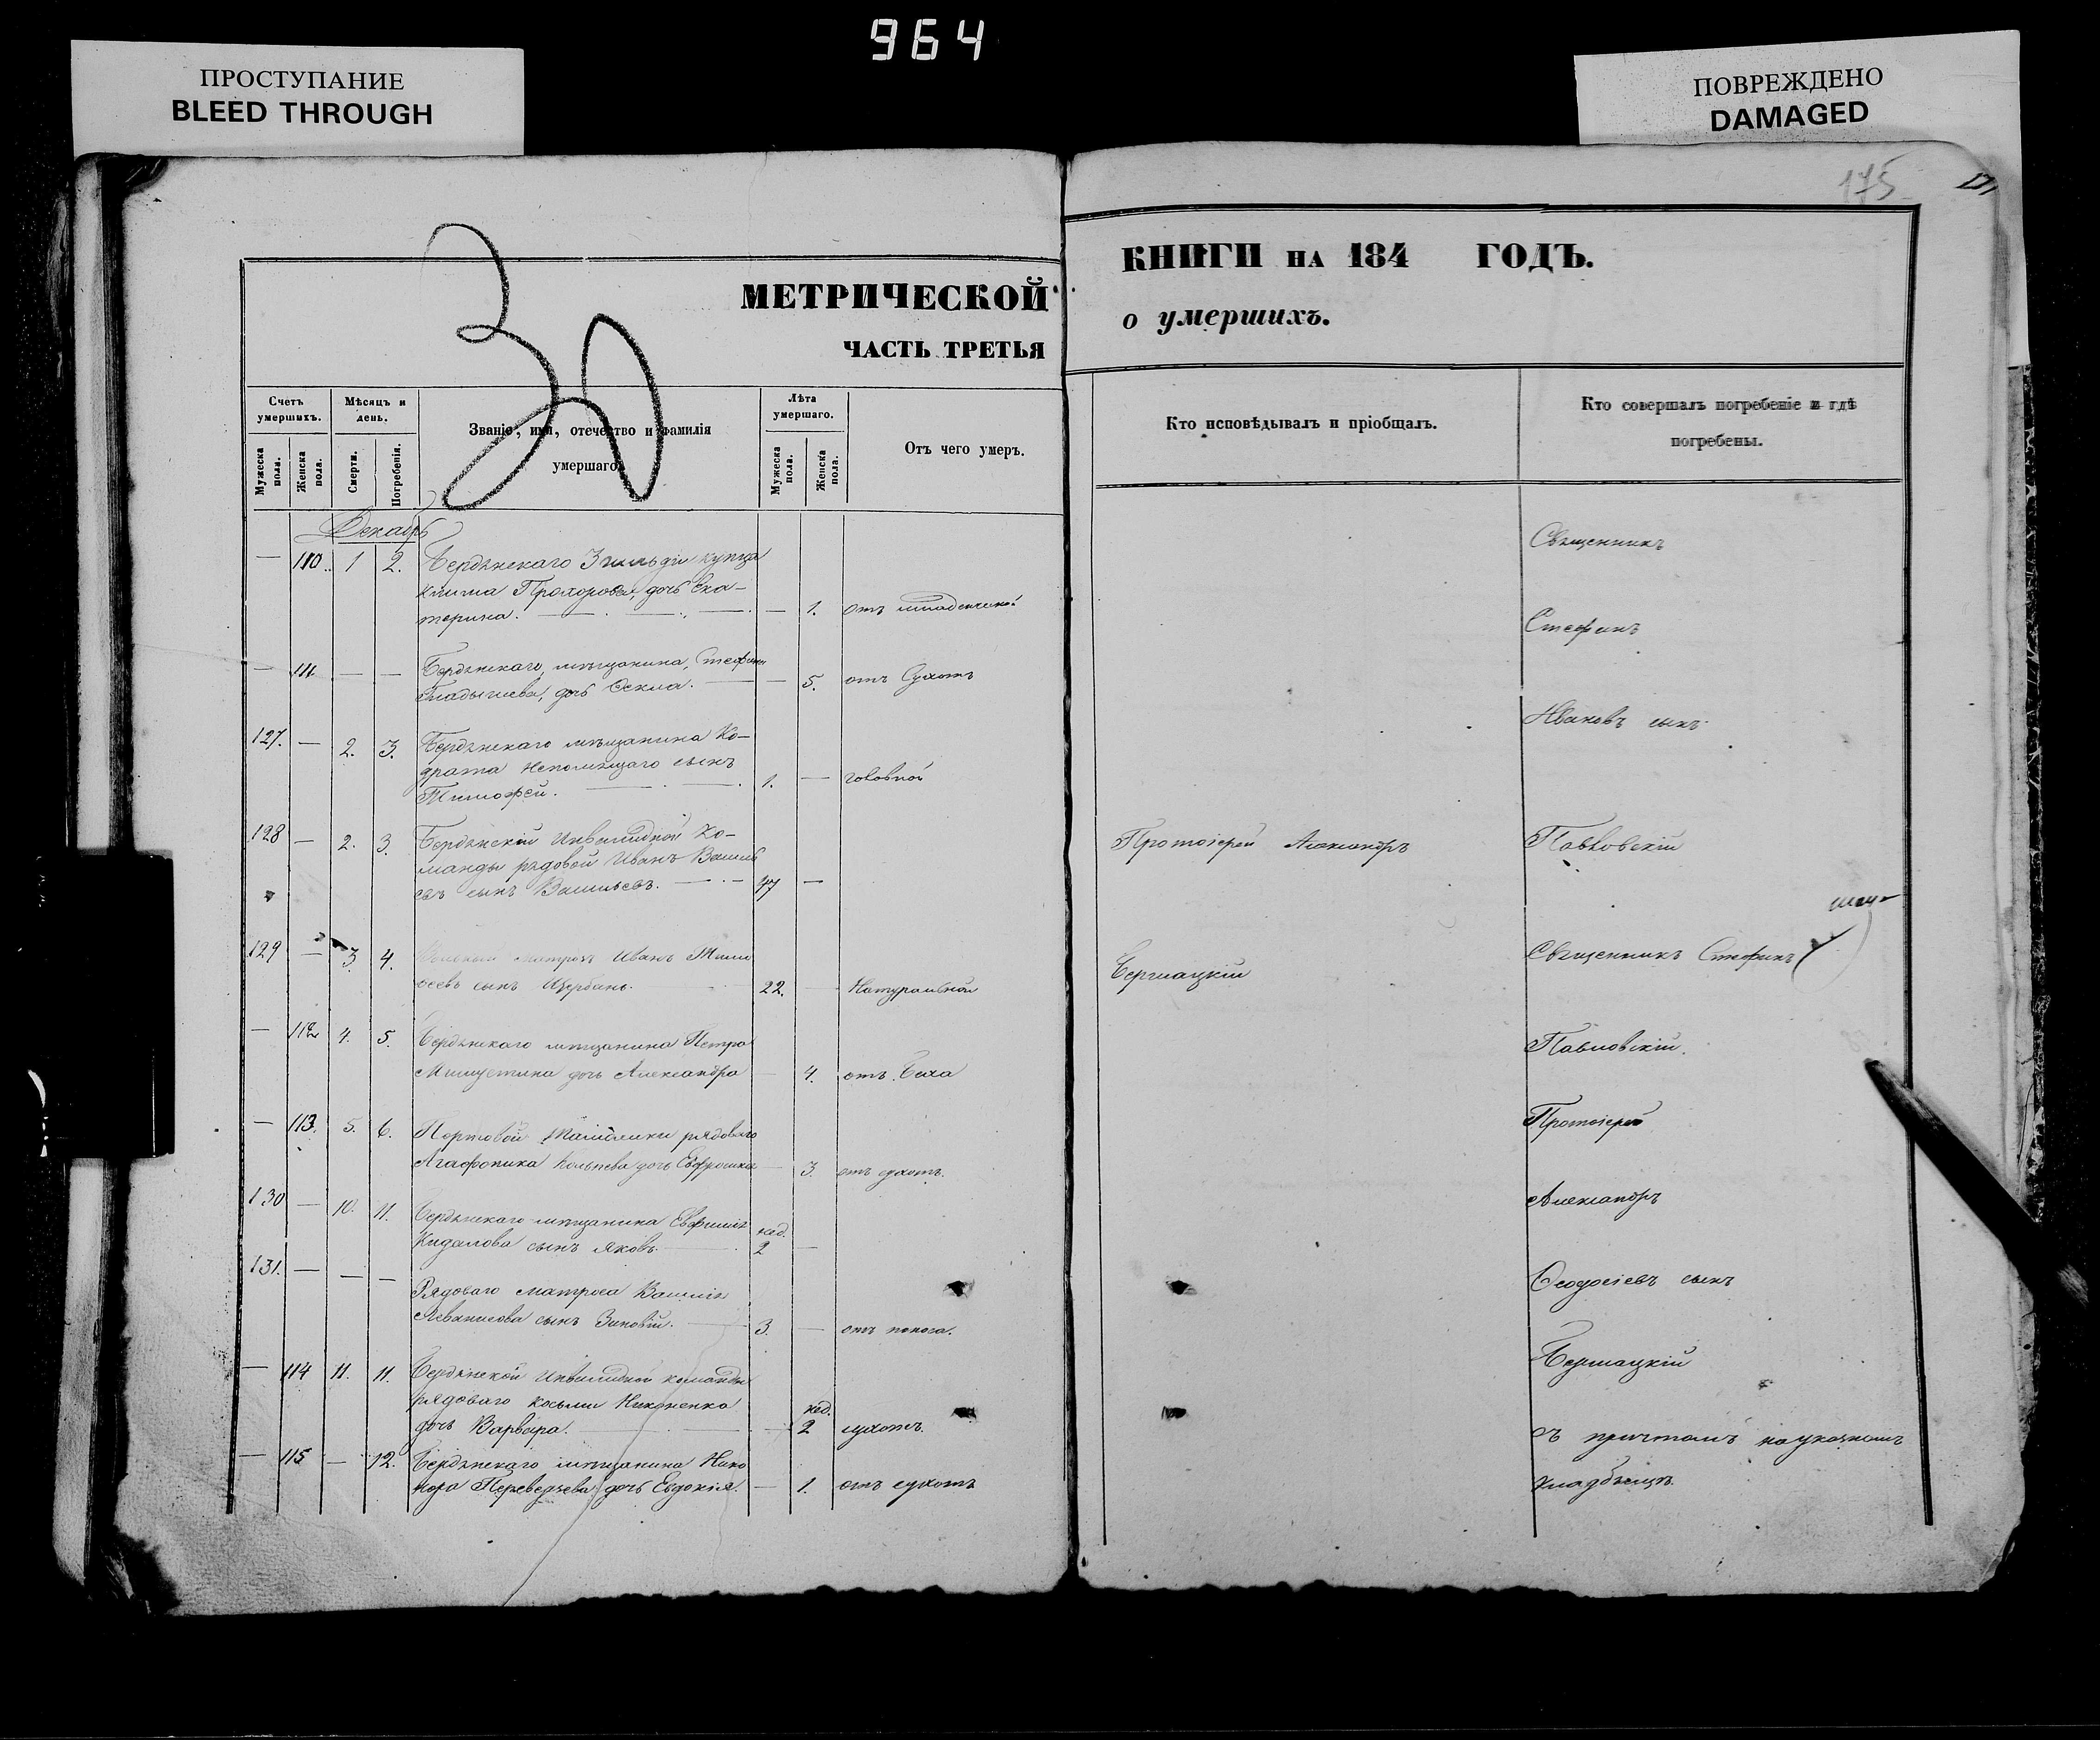 964
ПРОСТУПАНИЕ
BLEED THROUGH
ПОВРЕЖДЕНО
DAMAGED
175
30
МЕТРИЧЕСКОЙ
ЧАСТЬ ТРЕТЬЯ
Счетъ умершихъ.
Мужеска пола.
Женска пола.
Мѣсяцъ и день.
Смерти.
Погребенія.
Званіе, имя, отечество и фамилія
умершаго.
Лѣта умершаго.
Мужеска пола.
Женска пола.
Отъ чего умеръ.
Декабрь
— 110. 1 2. Бердянскаго 3 гильдіи купца
Клима Прохорова, дочь Ека-
терина. — 1. отъ младенческой
— 111. — — Бердянскаго мѣщанина, Стефана
дочь Ѳекла. — 5. отъ Сухотъ
127. — 2. 3. Бердянскаго мѣщанина Ко-
драта Непомнящаго сынъ
Тимофей. 1. — головной
128 — 2. 3. Бердянскій Инвалидной Ко-
манды рядовой Иванъ Василь
евъ сынъ Васильевъ. 47 —
129 — 3. 4. матрозъ Иванъ Тимо
ѳеевъ сынъ Щербань. 22. — Натуральной
— 112 4. 5. Бердянскаго мѣщанина Петра
Мишустина дочь Александра — 4. отъ
— 113. 5. 6. Портовой рядоваго
Агафоника дочь Евфросинія — 3. отъ сухотъ.
130 — 10. 11. Бердянскаго мѣщанина Евфимія
Кидалова сынъ Яковъ. нед. 2 —
131. — — — Рядоваго матроса Василія
сынъ Зиновій. 3. — отъ поноса.
— 114 11. 11. Бердянской Инвалидной команды
рядоваго Косьмы Никоненка
дочь Варвара. — нед. 2 сухотъ.
— 115 — 12. Бердянскаго мѣщанина Ника
нора Переведзева дочь Евдокія. — 1. отъ сухотъ
КНИГИ НА 184 ГОДЪ.
о умершихъ.
Кто исповѣдывалъ и пріобщалъ.
Кто совершалъ погребеніе и гдѣ
погребены.
Священникъ
Стефанъ
Ивановъ сынъ
Протоіерей Александръ
Павловскій
Бершацкій
Священникъ Стефанъ
Павловскій.
Протоіерей
Александръ
Ѳеодосіевъ сынъ
Бершацкій
съ причтомъ на указномъ
кладбищѣ.